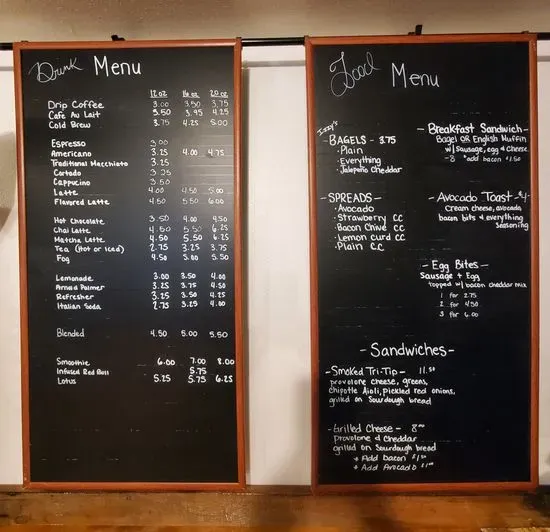 Drink Menu
12 oz 16 oz 20 oz
Drip Coffee 3.00 3.50 3.75
Cafe Au Lait 3.50 3.95 4.25
Cold Brew 3.75 4.25 5.00
Espresso 3.00
Americano 3.25 4.00 4.75
Traditional Macchiato 3.25
Cortado 3.25
Cappucino 3.50
Latte 4.00 4.50 5.00
Flavored Latte 4.50 5.50 6.00
Hot Chocolate 3.50 4.00 4.50
Chai Latte 4.50 5.50 6.25
Matcha Latte 4.50 5.50 6.25
Tea (Hot or Iced) 2.75 3.25 3.75
Fog 4.50 5.00 5.50
Lemonade 3.00 3.50 4.00
Arnold Palmer 3.25 3.75 4.50
Refresher 3.25 3.50 4.25
Italian Soda 2.75 3.25 4.00
Blended 4.50 5.00 5.50
Smoothie 6.00 7.00 8.00
Infused Red Bull 5.75
Lotus 5.25 5.75 6.25
Food Menu
Izzy's
-BAGELS - 3.75
· Plain
· Everything
· Jalapeño Cheddar
-SPREADS -
· Avocado
· Strawberry CC
· Bacon Chive CC
· Lemon Curd CC
· Plain CC
- Breakfast Sandwich -
Bagel OR English Muffin
w/ Sausage, egg & Cheese
- 8 *add bacon $1.50
- Avocado Toast - $4-
cream cheese, avocado,
bacon bits & everything
seasoning
- Egg Bites -
Sausage + Egg
topped w/ bacon cheddar mix
1 for 2.75
2 for 4.50
3 for 6.00
- Sandwiches -
-Smoked Tri-Tip - 11.50
provolone cheese, greens,
chipotle Aioli, pickled red onions,
grilled on Sourdough bread
-Grilled Cheese - 8.00
provolone & Cheddar
grilled on Sourdough bread
+ Add bacon $1.50
+ Add Avocado $1.00